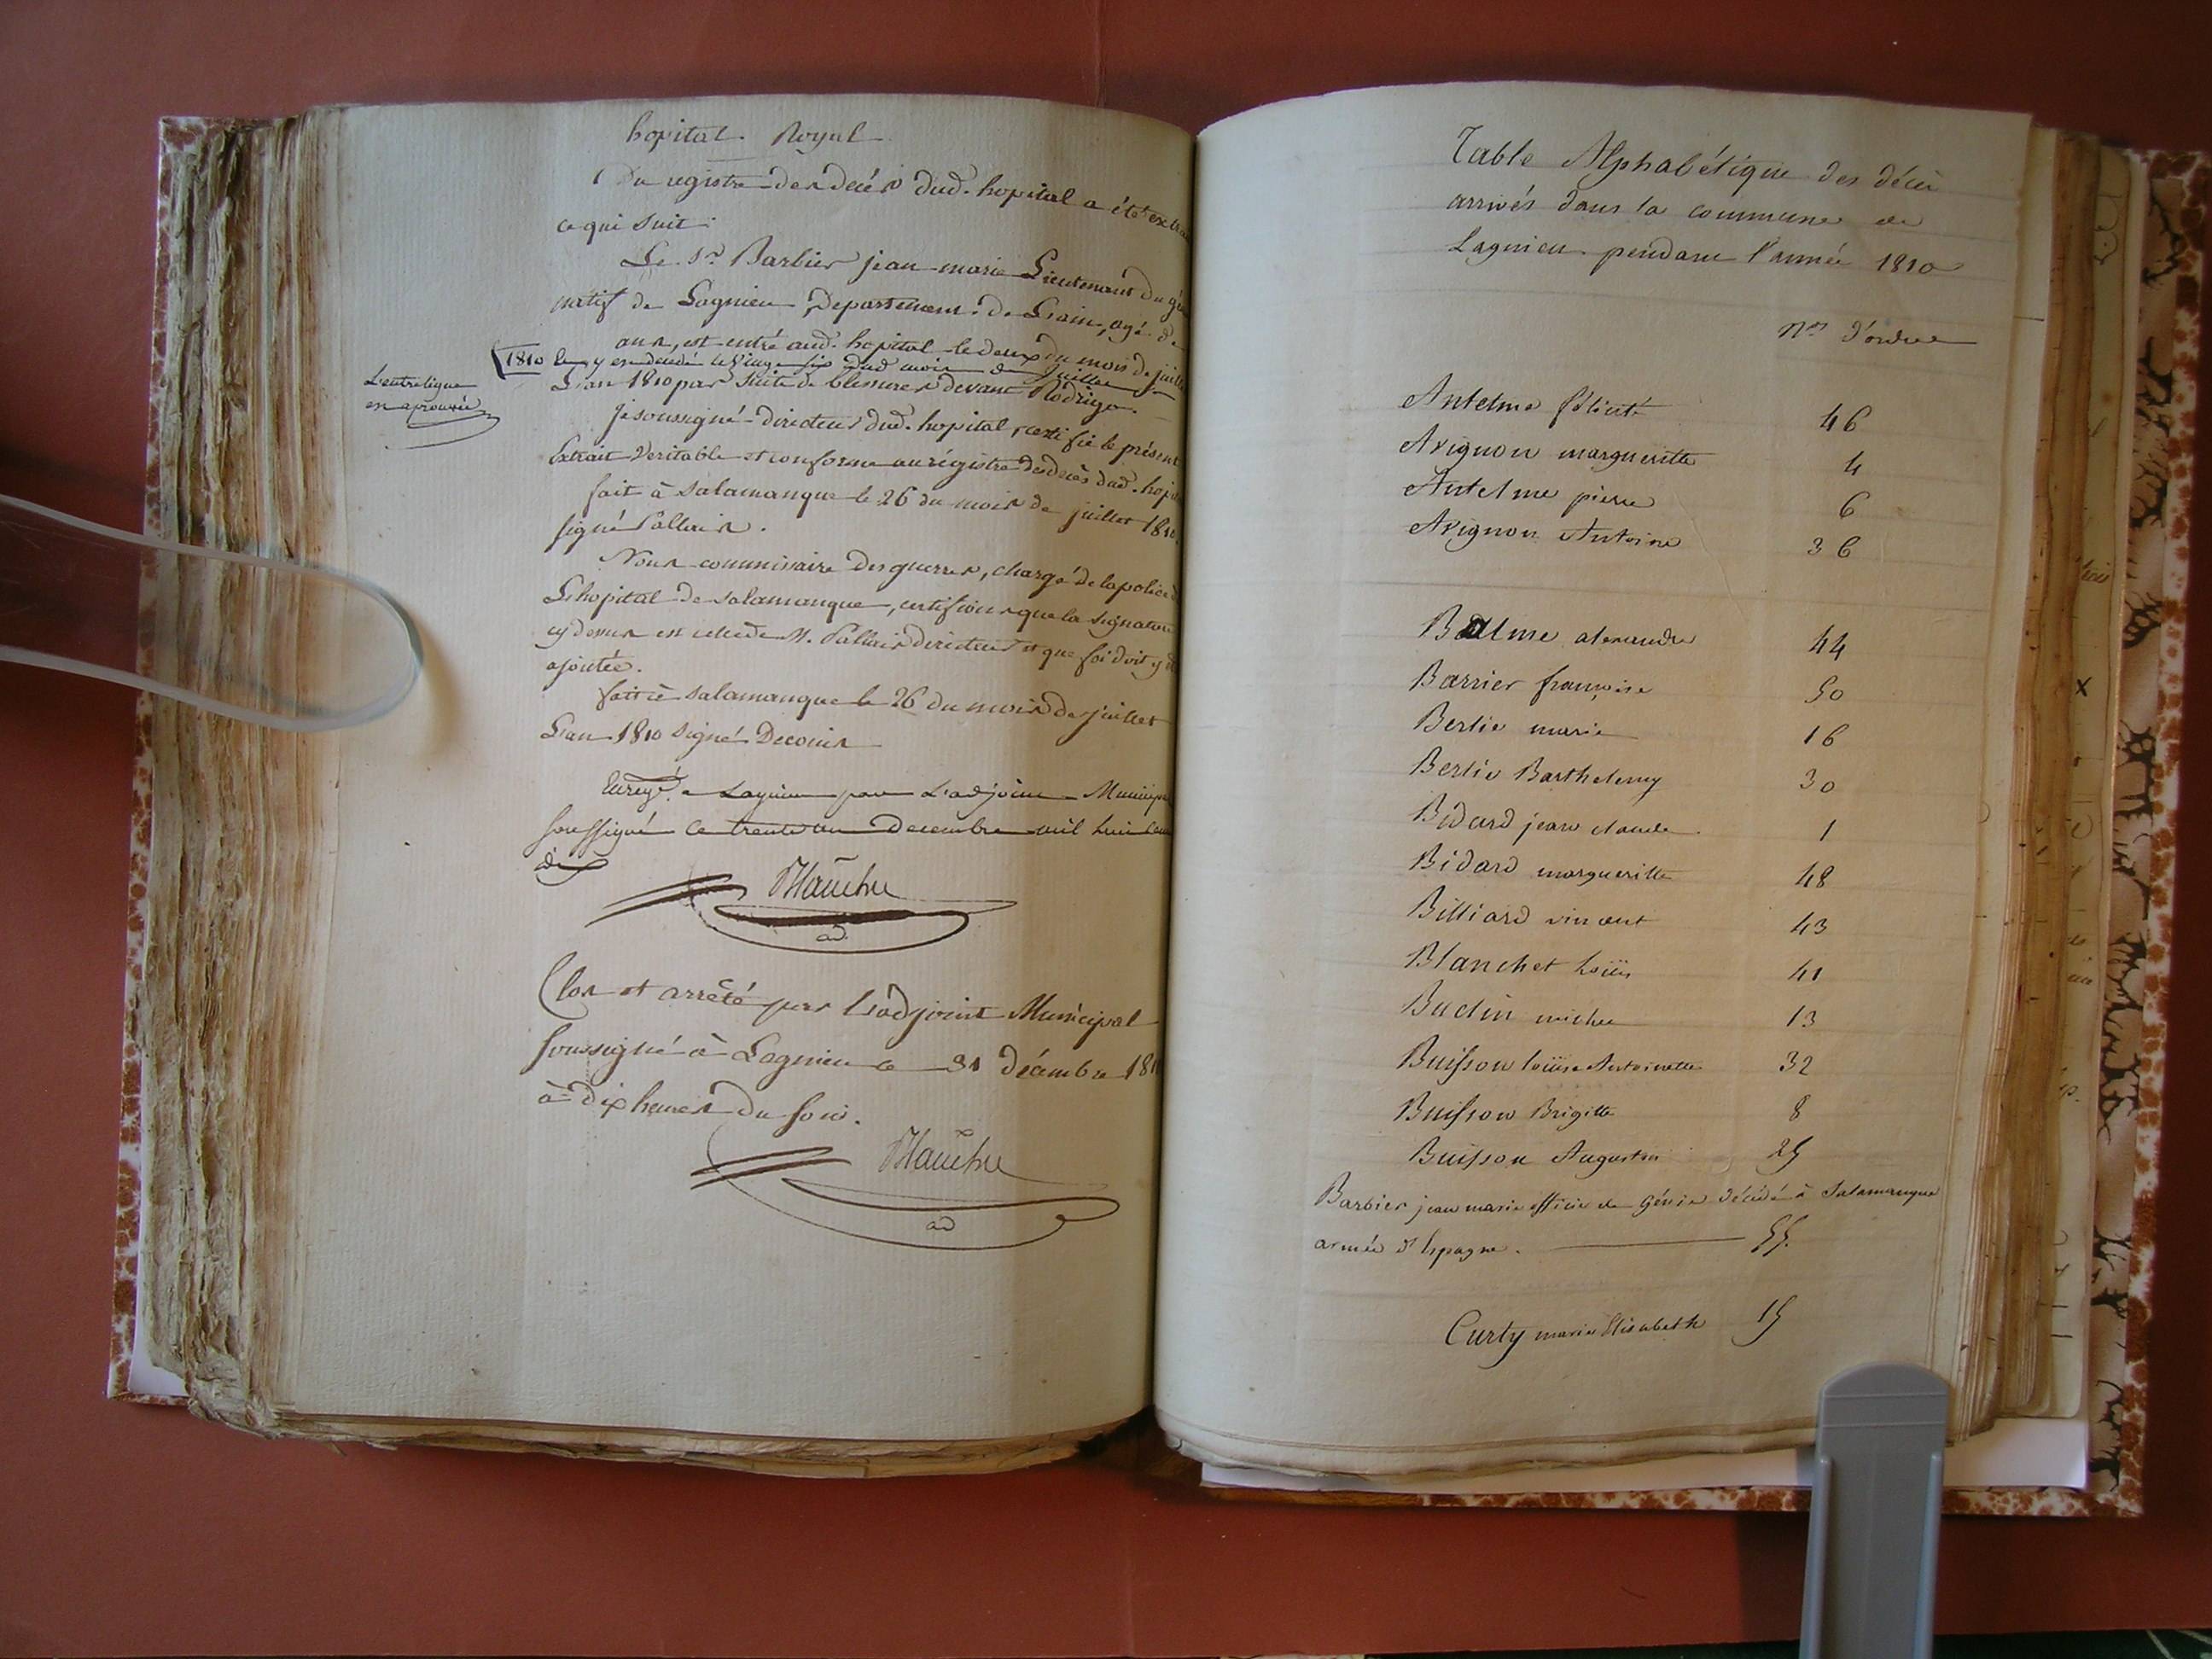 hopital Royal
Du registre des decés dud. hopital a été
ce qui suit:
Le Sr. Barbier jean marie Lieutenant du
natif de Lagnieu, Departement de Lain, agé de
ans, est entré aud. hopital le deux du mois de
1810 y est decedé le Vingt six dud mois de Juillet
L'an 1810 par suite de blessures devant Rodrigo.
L'entreligne
est aprouvée
Je soussigné directeur dud. hopital, certifie le présent
Extrait Veritable et conforme au régistre des decès dud.
fait à Salamanque le 26 du mois de juillet 1810.
signé Pallais.
Nous commissaire des guerres, chargé de la police
L'hopital de Salamanque, certifions que la signature
cy dessus est celle de M. Pallais directeur et que foi doit y
ajoutée.
fait à Salamanque le 26 du mois de juillet
L'an 1810 signé
a Lagnieu par L'adjoint
soussigné ce trente un decembre mil huit cent
dix
ad.
Clos et arrêté par L'adjoint Municipal
soussigné à Lagnieu le 31 décembre
à dix heures du soir.
ad
Table Alphabétique des décès
arrivés dans la commune de
Lagnieu pendant l'année 1810
Nos d'ordre
Antelme félicité 46
Avignon margueritte 4
Antelme pierre 6
Avignon Antoine 36
Balme alexandre 44
Barrier françoise 50
Berlie marie 16
Berlie Barthelemy 30
Bidard jean claude 1
Bidard margueritte 48
Billiard vincent 43
Blanchet Loüis 41
Budin michel 13
Buisson loüise Antoinette 32
Buisson Brigitte 8
Buisson Augustin 25
Barbier jean marie officier de Génie décédé à Salamanque
armée d'Espagne. 55.
Curty marie Elisabeth 15